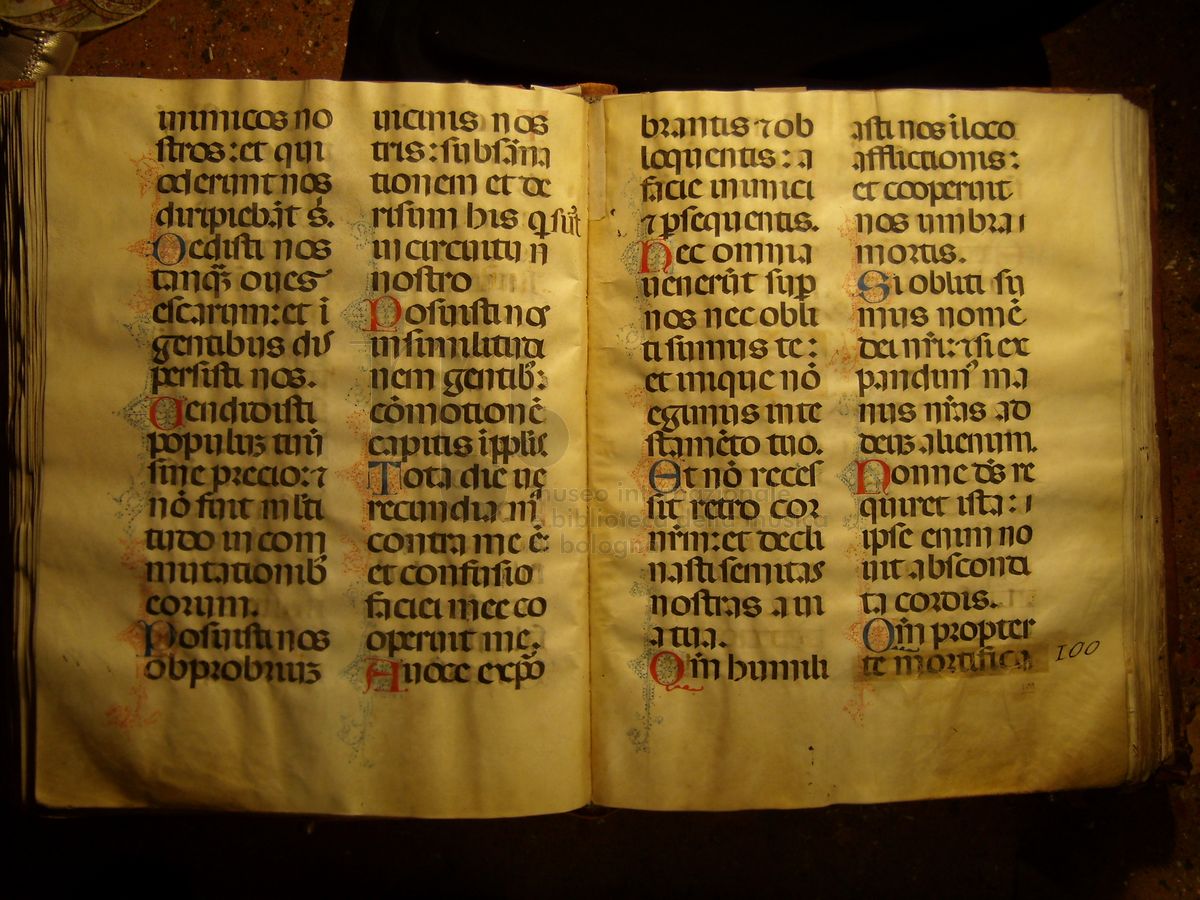 inimicos no
stros: et qui
oderunt nos
diripiebāt s̄.
Dedisti nos
tanq̄ȝ oues
escarum: et ī
gentibus dis
persisti nos.
Uendidisti
populuȝ tuū
sine precio: ⁊
nō fuit multi
tudo in com
mutationibꝰ
eorum.
Posuisti nos
obprobriuȝ
uicinis nos
tris: subsāna
tionem et de
risum his q̄ sūt
in circuitu n̄
nostro
Posuisti nos
in similitudi
nem gentibȝ
cōmotionē
capitis ī pplis.
Tota die ue
recundia m̄
contra me ē:
et confusio
faciei mee co
operuit me.
A uoce expō
brantis ⁊ ob
loquentis: a
facie inimici
⁊ psequentis.
Nec omnia
uenerūt sup
nos nec obli
ti sumus te:
et inique nō
egimus in te
stamēto tuo.
Et nō reces
sit retro cor
nrm̄: et decli
nasti semitas
nostras a ui
a tua.
Qm̄ humili
asti nos ī loco
afflictionis:
et cooperuit
nos umbra
mortis.
Si obliti su
mus nomē
dei nr̄i: ⁊ si ex
pandimꝰ ma
nus nr̄as ad
deuȝ alienum.
Nonne ds̄ re
quiret ista: i
ipse enim no
uit abscondi
ta cordis.
Qm̄ propter
te mortifica
100
museo internazionale
biblioteca della musica
bologna